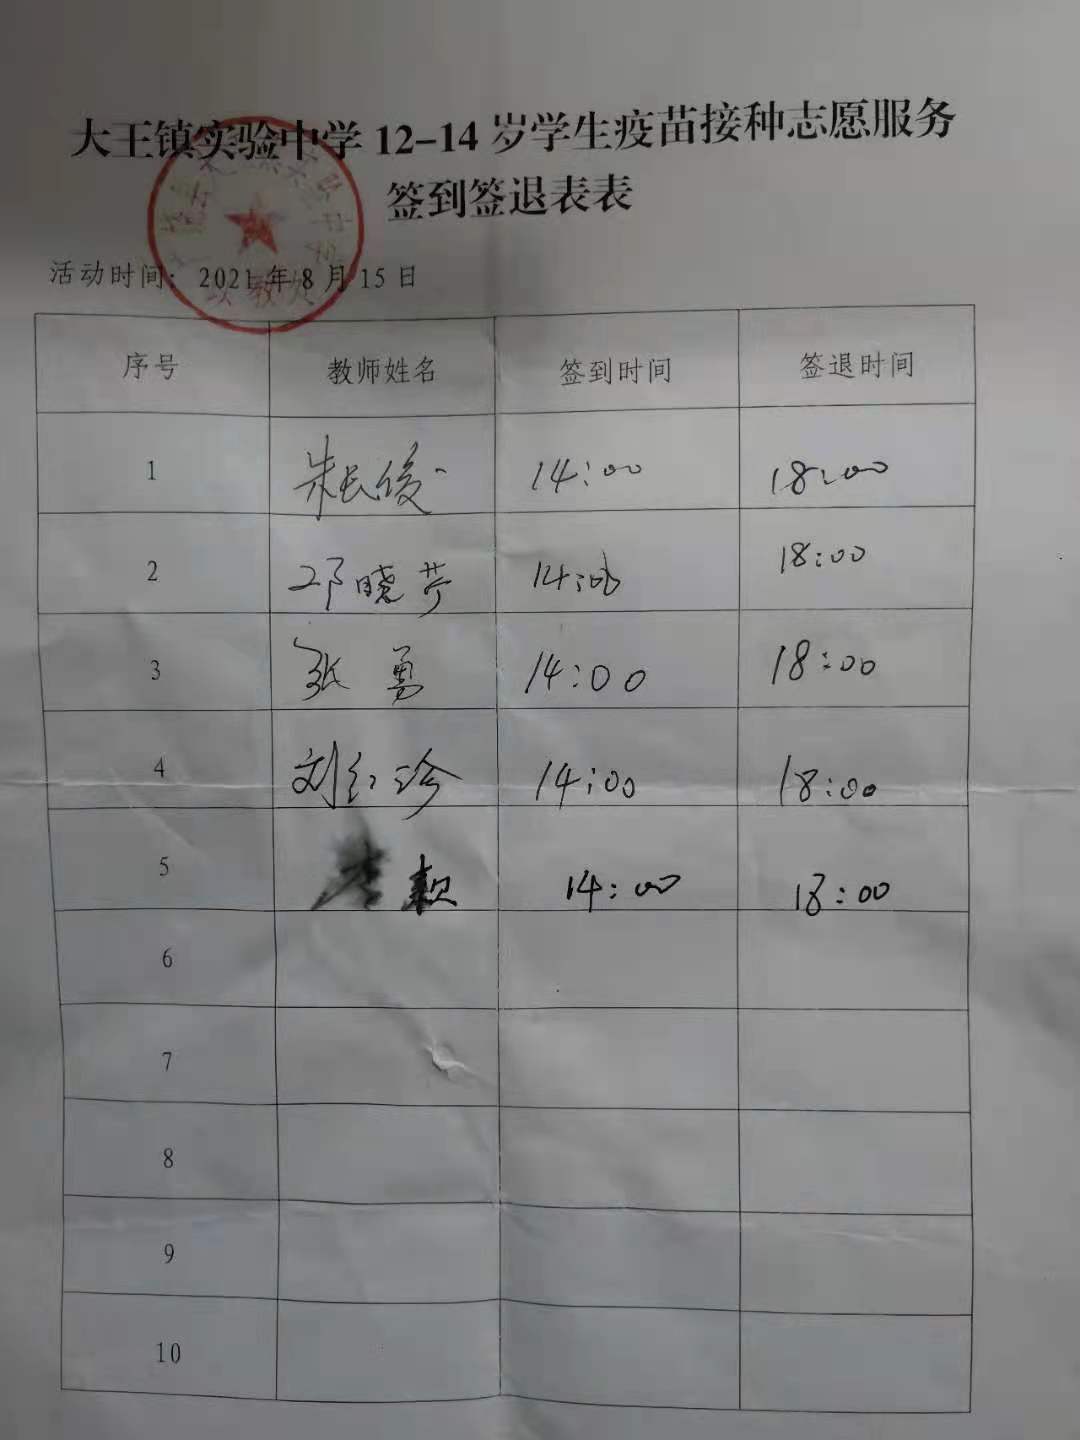 大王镇实验中学 12-14 岁学生疫苗接种志愿服务
签到签退表表
活动时间: 2021 年 8 月 15 日
序号 教师姓名 签到时间 签退时间
1 朱长俊 14:00 18:00
2 邓晓芳 14:00 18:00
3 张勇 14:00 18:00
4 刘红珍 14:00 18:00
5 14:00 18:00
6
7
8
9
10